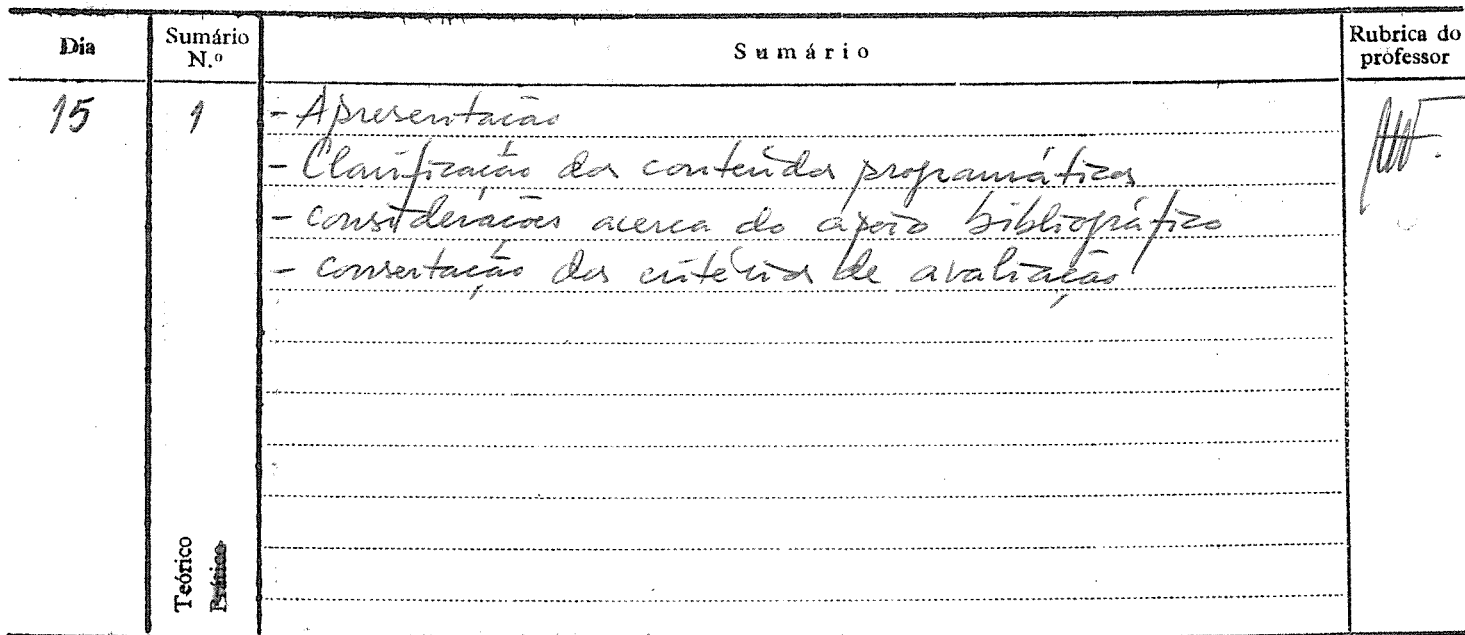 Dia Sumário N.º Sumário Rubrica do professor
15 1 - Apresentação
- Clarificação dos conteúdos programáticos
- considerações acerca do apoio bibliográfico
- consertação dos critérios de avaliação
Teórico
Prático